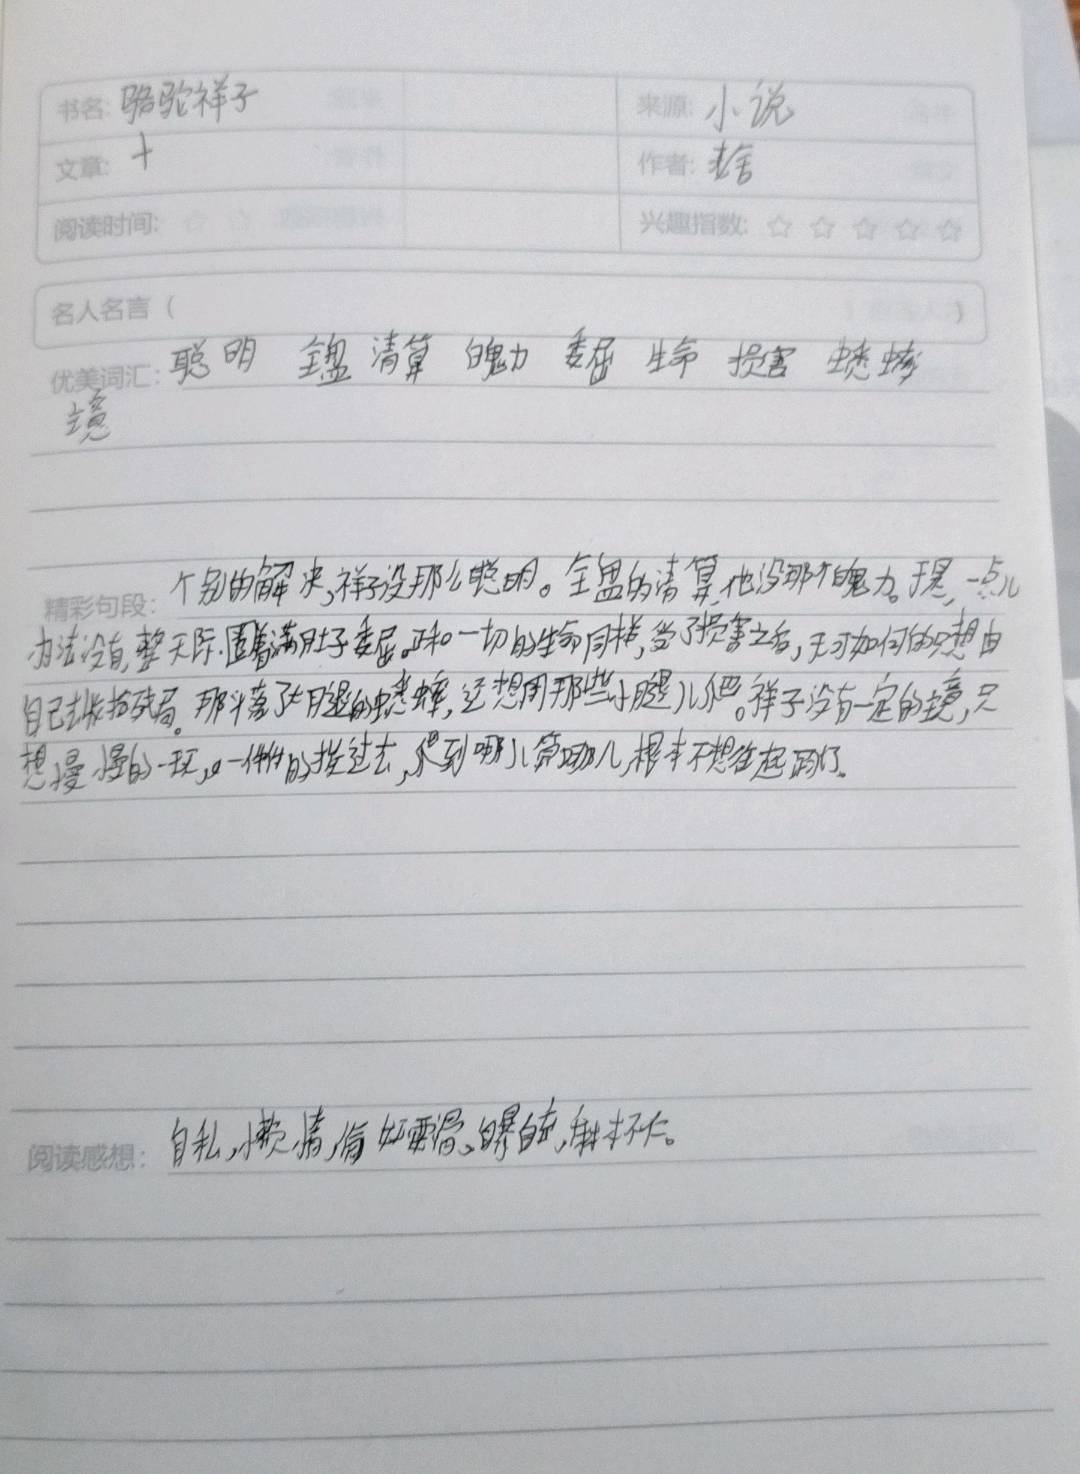 书名: 骆驼祥子 来源: 小说
文章: 十 作者: 老舍
阅读时间: 兴趣指数: ☆ ☆ ☆ ☆ ☆
名人名言 ( )
优美词汇: 聪明 全盘 清算 魄力 委屈 生命 损害 蟋蟀
主意
精彩句段: 个别的解决,祥子没那么聪明。全盘的清算,他没那个魄力。于是,一点儿
办法没有,整天际圈着满肚子委屈。正和一切的生命同样,受了损害之后,无可如何的只想由
自己去收拾残局。那斗落了大腿的蟋蟀,还想用那些小腿儿爬。祥子没有一定的主意,只
想慢慢的一天天,一件件的挨过去,爬到哪儿算哪儿,根本不想往起跳了。
阅读感想: 自私,懒惰,偷奸耍滑、自暴自弃,麻木不仁。